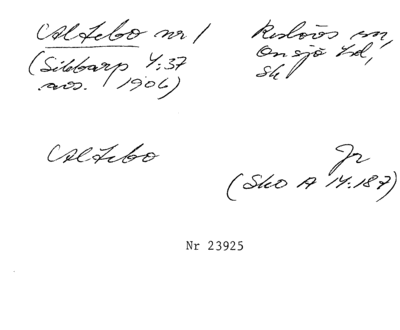 Alfebo nr 1
(Sibbarp 4:37
avs. 1906)
Reslövs sn,
Onsjö hd,
Sk
Alfebo
Jr
(Sko A 14:187)
Nr 23925